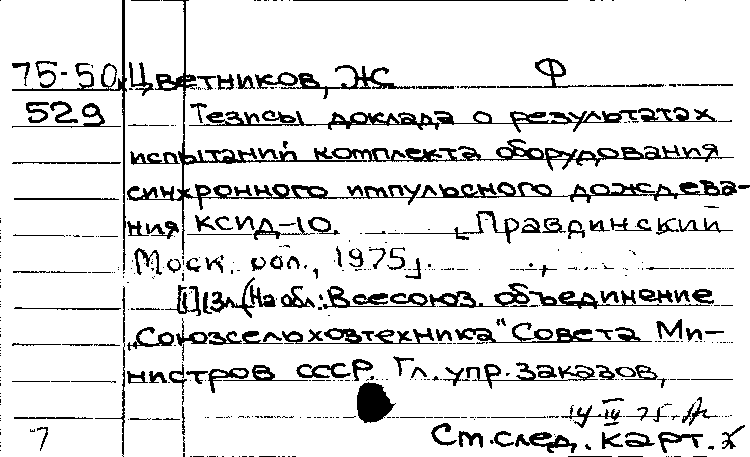 75-50 Цветников, ЖС Ф
529 Тезисы доклада о результатах
испытаний комплекта оборудования
синхронного импульсного дождева-
ния КСИД-10. [Правдинский
Моск. обл., 1975].
[1] 13л. (На обл.: Всесоюз. объединение
„Союзсельхозтехника" Совета Ми-
нистров СССР. Гл. упр. заказов,
14 IV 75.
7 См. след. карт.